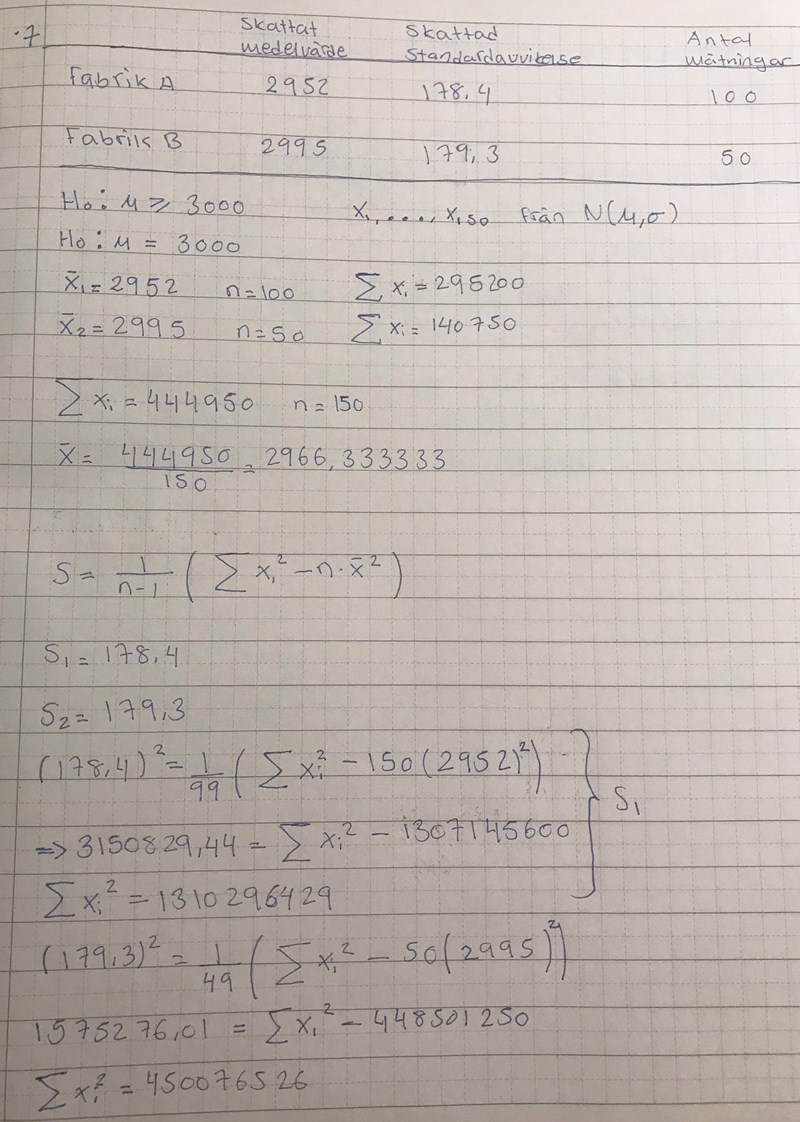 .7 Skattat medelvärde Skattad Standardavvikelse Antal mätningar
Fabrik A 2952 178,4 100
Fabrik B 2995 179,3 50
H₀: μ ≥ 3000 x₁, ..., x₁₅₀ från N(μ,σ)
H₀: μ = 3000
x̄₁ = 2952 n=100 ∑ xᵢ = 295200
x̄₂ = 2995 n=50 ∑ xᵢ = 140750
∑ xᵢ = 444950 n=150
x̄ = 444950/150 = 2966,333333
S = 1/(n-1) (∑ xᵢ² - n·x̄²)
S₁ = 178,4
S₂ = 179,3
(178,4)² = 1/99 (∑ xᵢ² - 150(2952)²) } S₁
=> 3150829,44 = ∑ xᵢ² - 1307145600
∑ xᵢ² = 1310296429
(179,3)² = 1/49 (∑ xᵢ² - 50(2995)²)
1575276,01 = ∑ xᵢ² - 448501250
∑ xᵢ² = 450076526